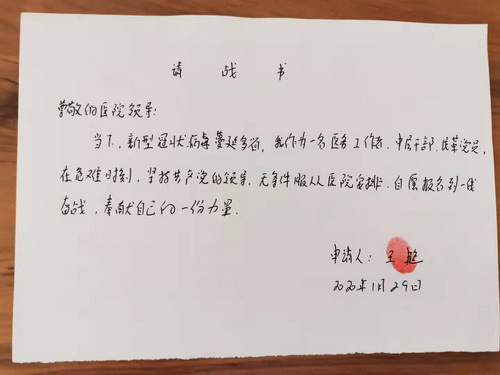 请战书
尊敬的医院领导:
当下,新型冠状病毒蔓延多省,我作为一名医务工作者、中层干部、民革党员,
在危难时刻,坚持共产党的领导、无条件服从医院安排、自愿报名到一线
奋战,奉献自己的一份力量.
申请人: 王艇
2020年1月29日